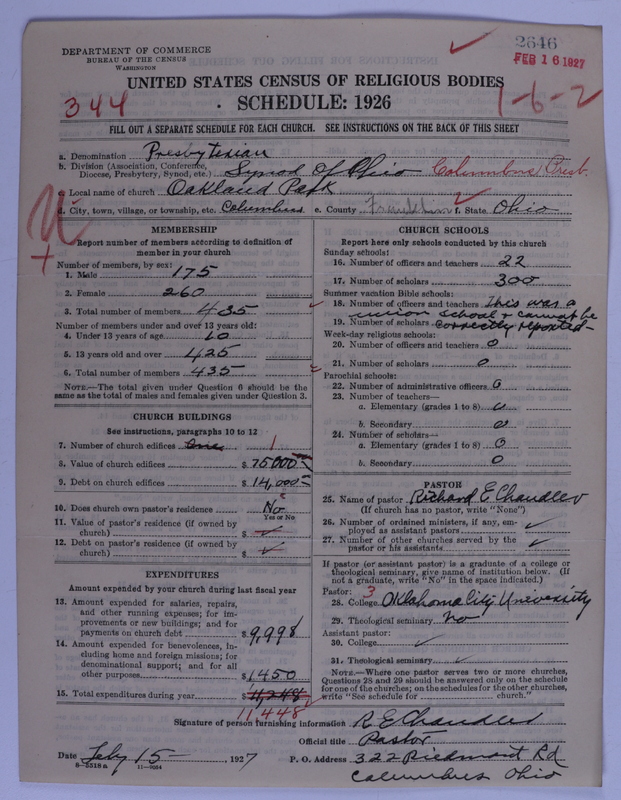 2646
FEB 16 1927
DEPARTMENT OF COMMERCE
BUREAU OF THE CENSUS
WASHINGTON
UNITED STATES CENSUS OF RELIGIOUS BODIES
SCHEDULE: 1926
344
1-6-2
FILL OUT A SEPARATE SCHEDULE FOR EACH CHURCH. SEE INSTRUCTIONS ON THE BACK OF THIS SHEET
a. Denomination Presbyterian
b. Division (Association, Conference, Diocese, Presbytery, Synod, etc.) Synod of Ohio Columbus Presb.
c. Local name of church Oakland Park
d. City, town, village, or township, etc. Columbus e. County Franklin f. State Ohio
MEMBERSHIP
Report number of members according to definition of
member in your church
Number of members, by sex:
1. Male 175
2. Female 260
3. Total number of members 435
Number of members under and over 13 years old:
4. Under 13 years of age 10
5. 13 years old and over 425
6. Total number of members 435
NOTE.—The total given under Question 6 should be the
same as the total of males and females given under Question 3.
CHURCH BUILDINGS
See instructions, paragraphs 10 to 12
7. Number of church edifices One 1
8. Value of church edifices $ 75000
9. Debt on church edifices $ 14,000
10. Does church own pastor's residence? No
Yes or No
11. Value of pastor's residence (if owned by
church) $
12. Debt on pastor's residence (if owned by
church) $
EXPENDITURES
Amount expended by your church during last fiscal year
13. Amount expended for salaries, repairs,
and other running expenses; for im-
provements or new buildings; and for
payments on church debt $ 9,998
14. Amount expended for benevolences, in-
cluding home and foreign missions; for
denominational support; and for all
other purposes $ 1450
15. Total expenditures during year $ 11,248
11,448
CHURCH SCHOOLS
Report here only schools conducted by this church
Sunday schools:
16. Number of officers and teachers 22
17. Number of scholars 300
Summer vacation Bible schools:
18. Number of officers and teachers This was a
union school & cannot be
19. Number of scholars correctly reported-
Week-day religious schools:
20. Number of officers and teachers 0
21. Number of scholars 0
Parochial schools:
22. Number of administrative officers 0
23. Number of teachers—
a. Elementary (grades 1 to 8) 0
b. Secondary 0
24. Number of scholars—
a. Elementary (grades 1 to 8) 0
b. Secondary 0
PASTOR
25. Name of pastor Richard E Chandler
(If church has no pastor, write "None")
26. Number of ordained ministers, if any, em-
ployed as assistant pastors
27. Number of other churches served by the
pastor or his assistants
If pastor (or assistant pastor) is a graduate of a college or
theological seminary, give name of institution below. (If
not a graduate, write "No" in the space indicated.)
Pastor: 3
28. College Oklahoma City University
29. Theological seminary No
Assistant pastor:
30. College
31. Theological seminary
NOTE.—Where one pastor serves two or more churches,
Questions 28 and 29 should be answered only on the schedule
for one of the churches; on the schedules for the other churches,
write "See schedule for ............ church."
Signature of person furnishing information R. E. Chandler
Official title Pastor
Date Feby 15 - , 1927 P. O. Address 322 Piedmont Rd
Columbus Ohio
8-5518a 11-9054